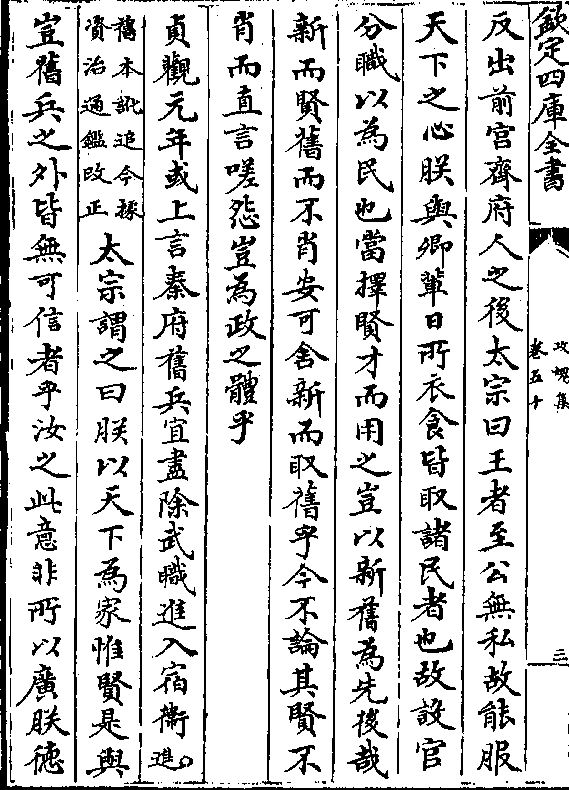 欽定四庫全書
攻媿集
卷五十
三
反出前宫齊府人之後太宗曰王者至公無私故能服
天下之心朕與卿輩日所衣食皆取諸民者也故設官
分職以為民也當擇賢才而用之豈以新舊為先後哉
新而賢舊而不肖安可舍新而取舊乎今不論其賢不
肖而直言嗟怨豈為政之體乎
貞觀元年或上言秦府舊兵宜盡除武職進入宿衛進
舊本訛追今據
資治通鑑改正
太宗謂之曰朕以天下為家惟賢是與
豈舊兵之外皆無可信者乎汝之此意非所以廣朕德